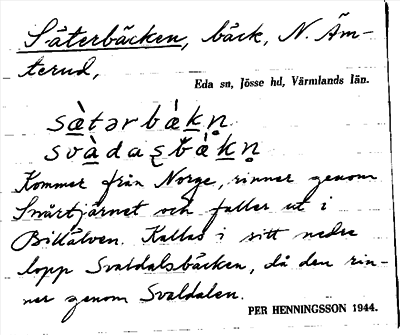 Säterbäcken, bäck, N. Äm-
terud,
Eda sn, Jösse hd, Värmlands län.
sà̱tərbà̱ḵn̥
svà̱daʂb̆à̱ḵn̥
Kommer från Norge, rinner genom
Svartjärnet och faller ut i
Billälven. Kallas i sitt nedre
lopp Svaldalsbäcken, då den rin-
ner genom Svaldalen.
PER HENNINGSSON 1944.